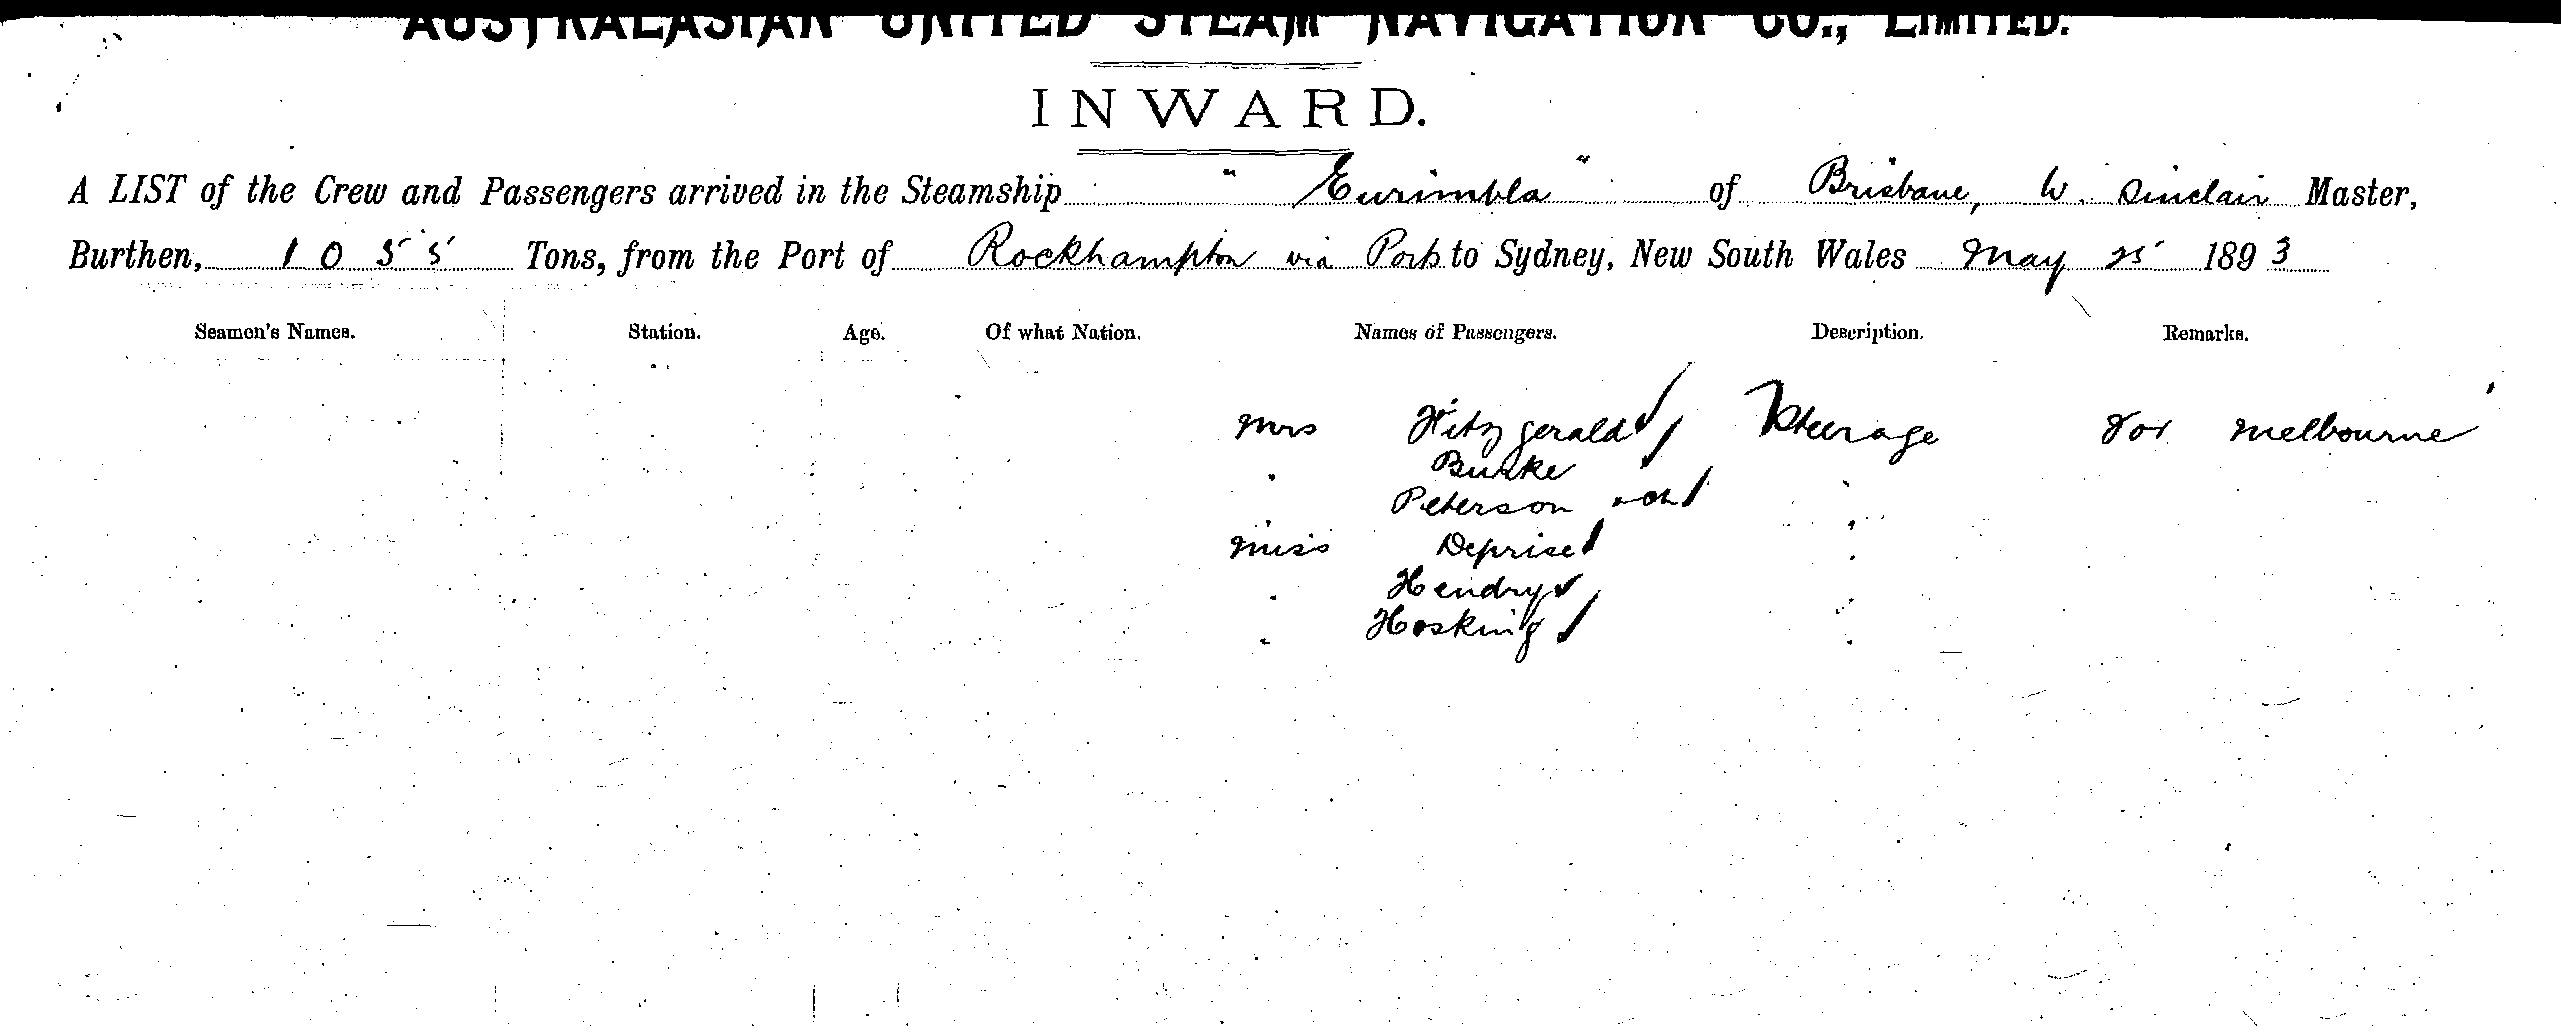 AUSTRALASIAN UNITED STEAM NAVIGATION CO., LIMITED.
INWARD.
A LIST of the Crew and Passengers arrived in the Steamship "Eurimbla" of Brisbane, W. Sinclair Master,
Burthen, 1055 Tons, from the Port of Rockhampton via Ports to Sydney, New South Wales May 25 1893
Seamen's Names. Station. Age. Of what Nation. Names of Passengers. Description. Remarks.
Mrs Fitzgerald Steerage For Melbourne
" Burke
Peterson "
Miss Deprise "
" Hendry "
" Hosking "